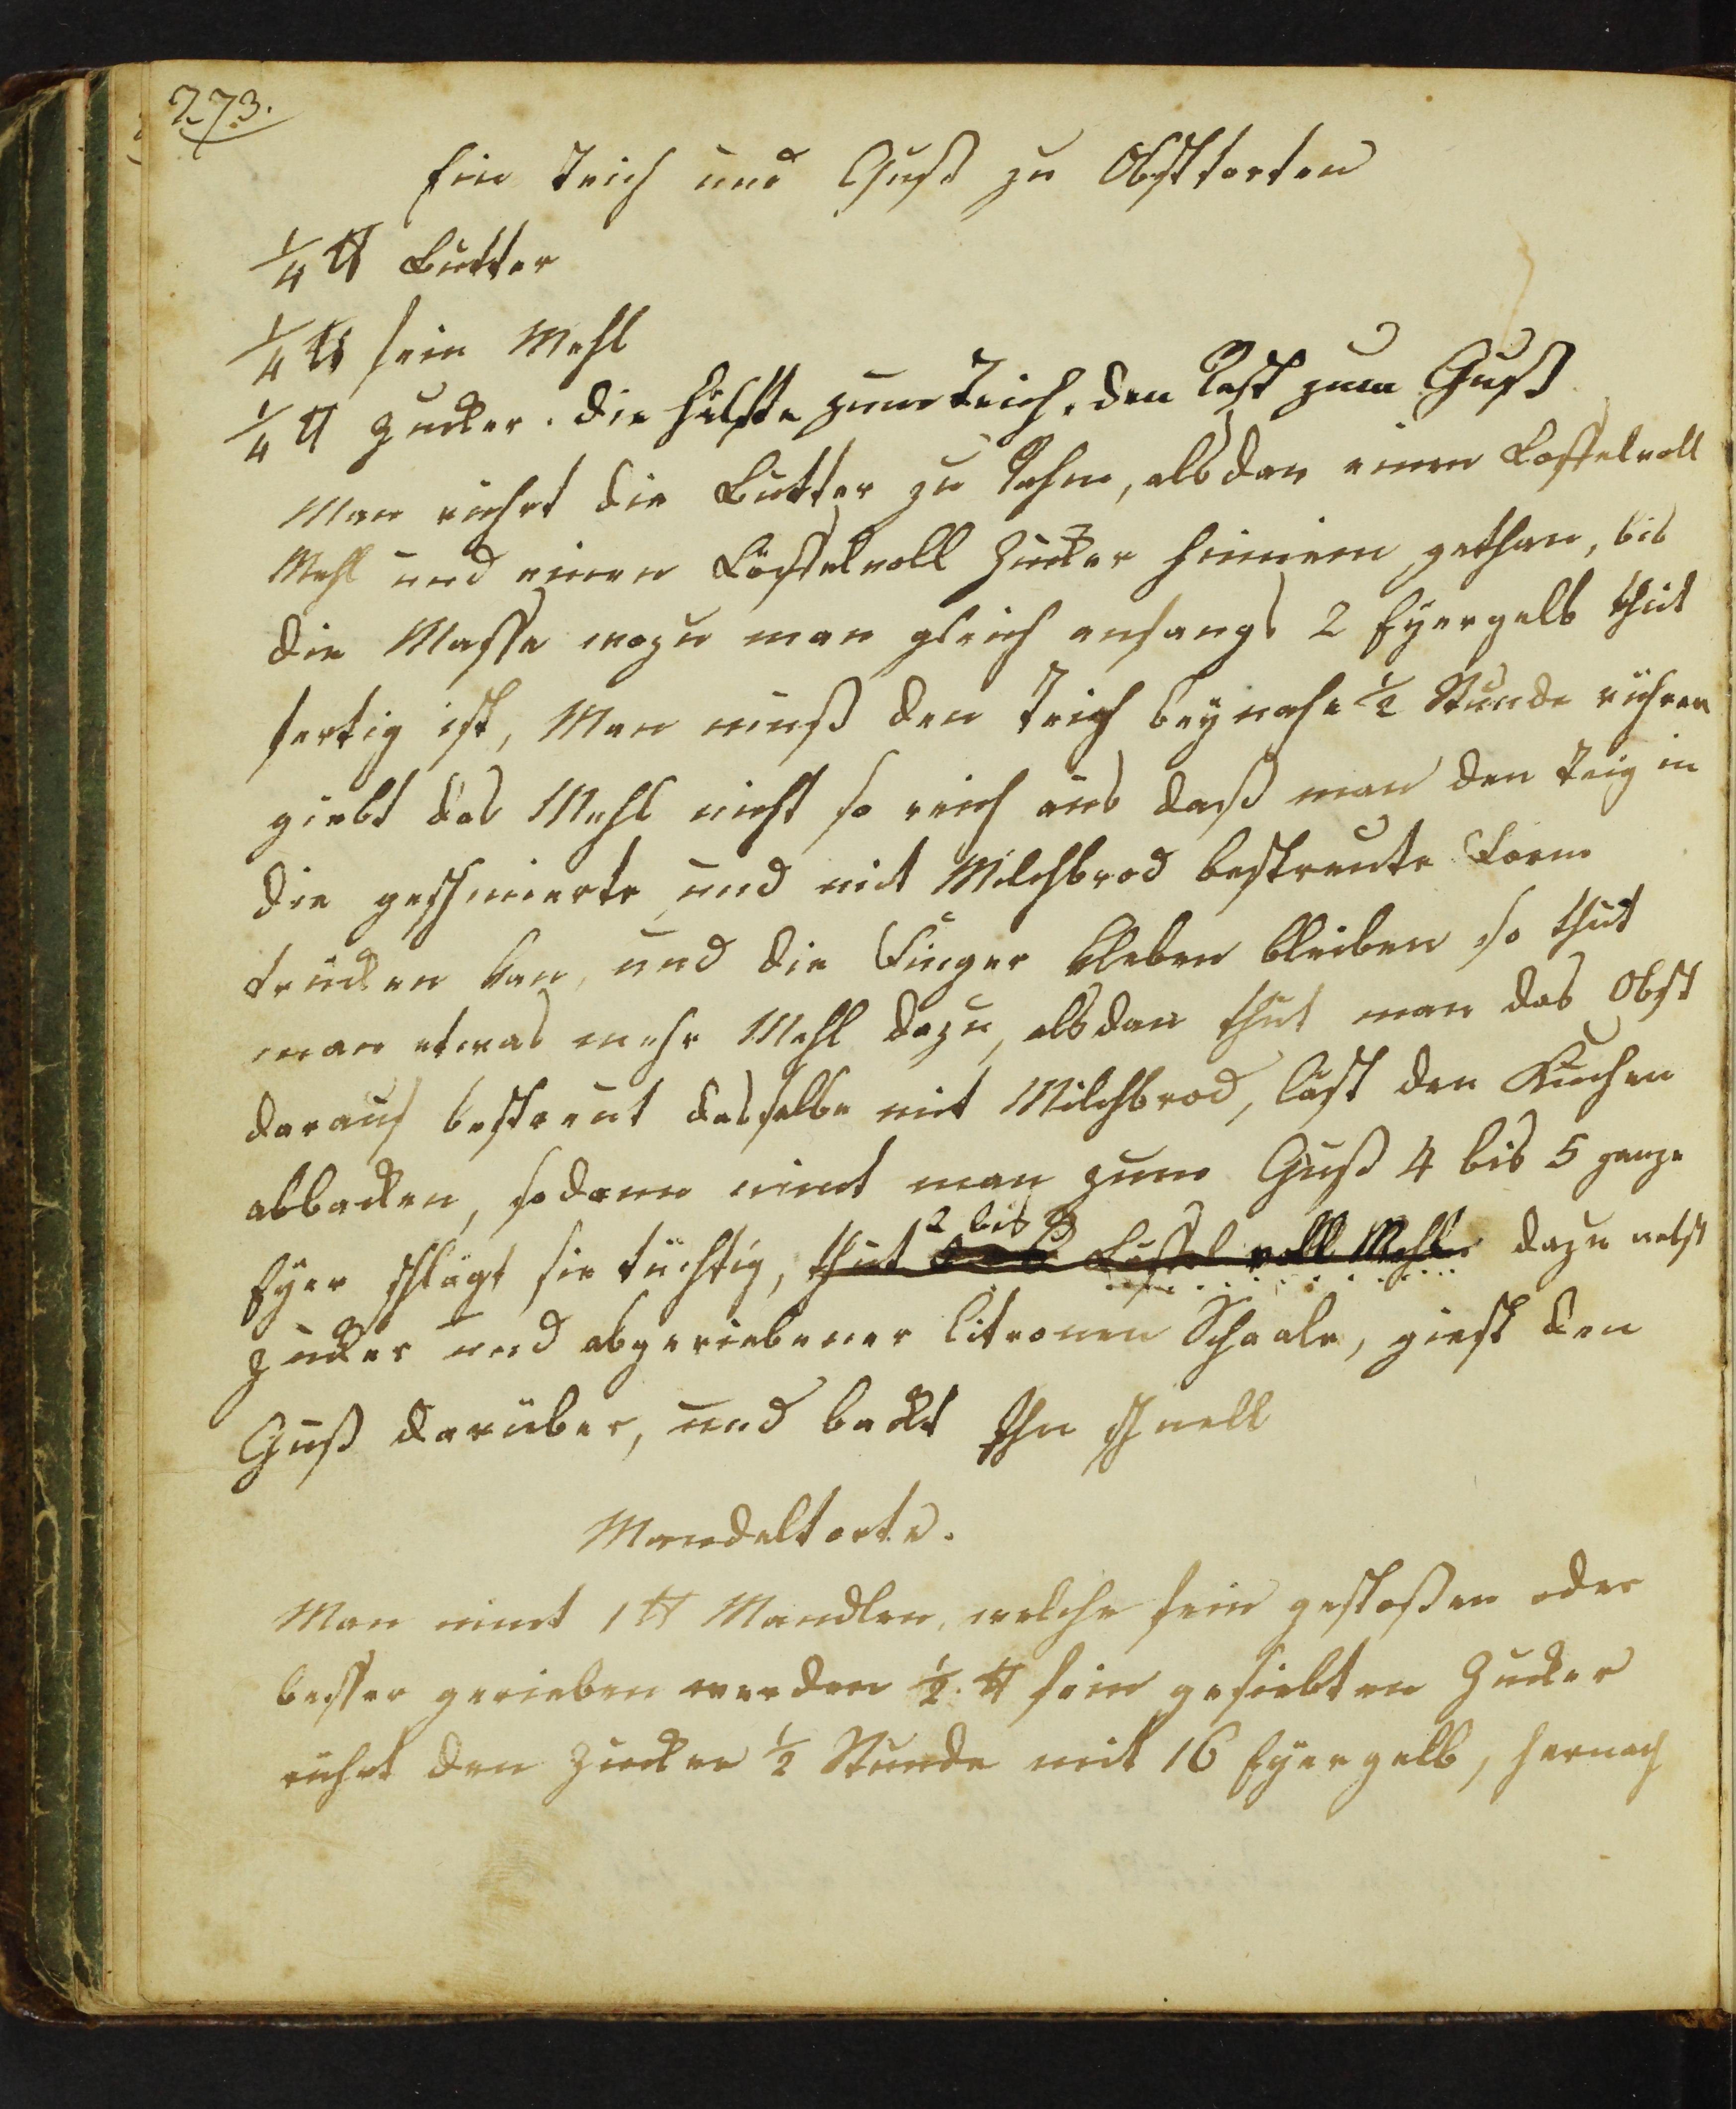 273.
Ein Teich und Guß zu Obsttorten
1/4 ℔ Butter
1/4 ℔ fein Mehl
1/4 ℔ Zucker. die Hälfte zum Teich. den Rest zum Guß
Man rührt die Butter zu Rahm, alsdan einen Loffelvoll
Mehl und einen Löffelvoll Zucker hinnein gethan, bis
die Masse wozu man gleich anfangs 2 Eyergelb thut
fertig ist, Man muß den Teig beynahe 1/2 Stunde rühren
giebt das Mehl nicht so reich aus daß man den Teig in
die geschmierte und mit Milchbrod bestreute Form
trücken kan, und die Finger kleben bleiben so thut
man etwas mehr Mehl dazu, alsdan thut man das Obst
darauf bestreut dasselbe mit Milchbrod, läst den Kuchen
abbacken, sodann nimt man zum Guß 4 bis 5 ganze
Eyer schlägt sie tüchtig, thut 2 bis 3 Loffel voll Mehl dazu nebst
Zucker und abgeriebener Citronen Schaale, giest den
Guß darüber, und backt Ihn schnell
Mandeltorte.
Man nimt 1 ℔ Mandlen, welche fein gestoßen oder
besser gerieben werden 1/2. ℔ fein gesiebten Zucker
rührt den Zucker 1/2 Stunde mit 16 Eyergelb, hernach